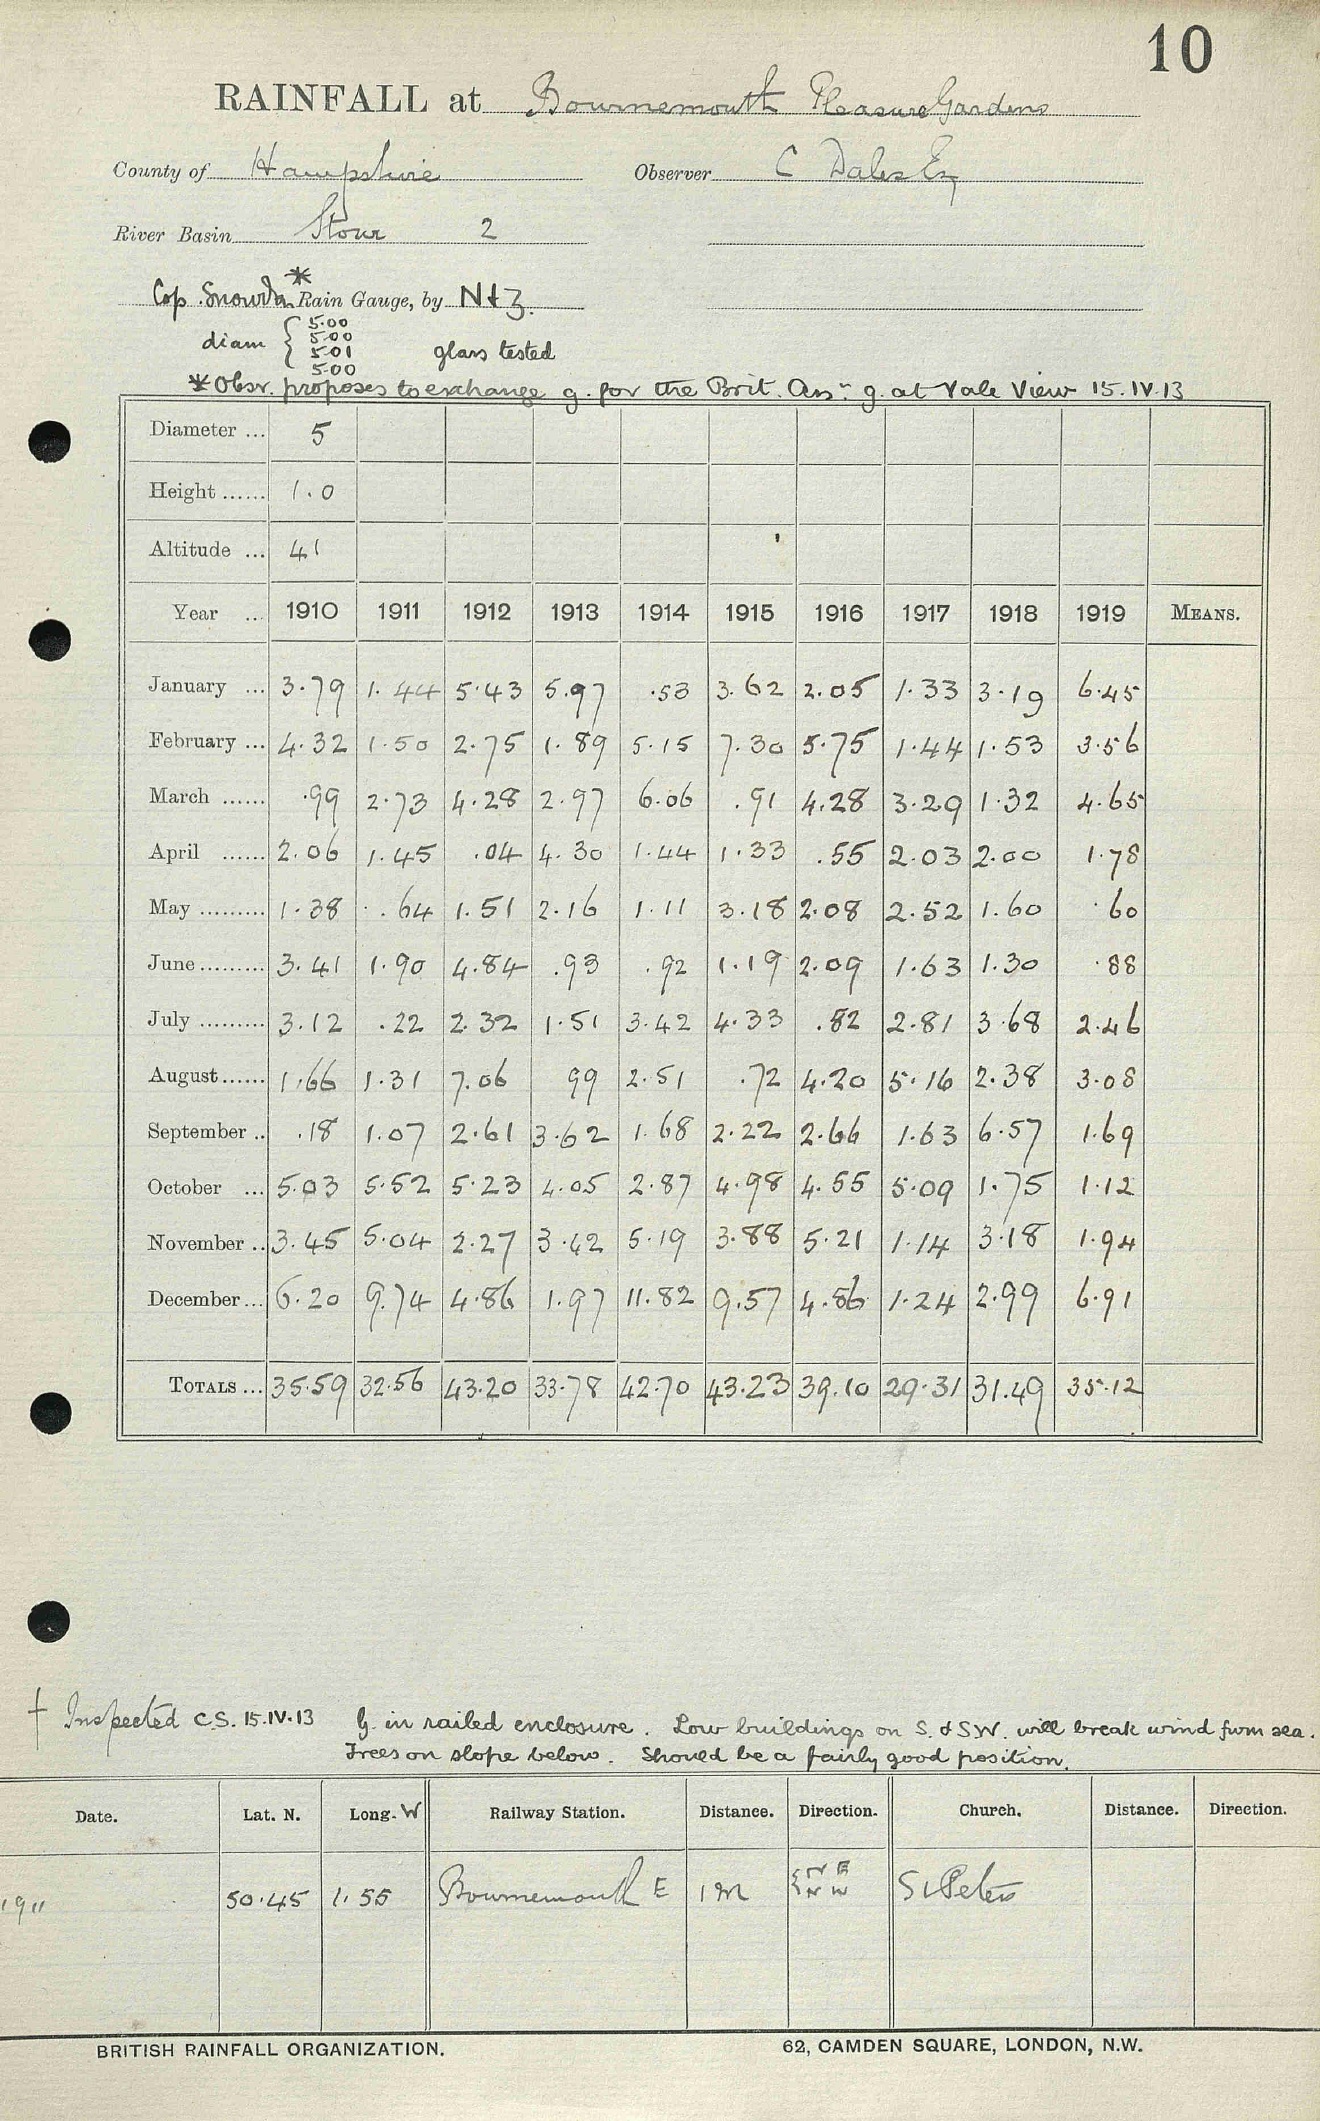 10
RAINFALL at Bournemouth Pleasure Gardens
County of Hampshire Observer C Dales Esq
River Basin Stour 2
Cop Snowdon * Rain Gauge, by N & Z.
diam { 5.00
5.00
5.01 glass tested
5.00
* Obsr. proposes to exchange g. for the Brit. Assn. g. at Vale View 15.IV.13
Diameter ... 5
Height ...... 1.0
Altitude ... 41
Year ... 1910 1911 1912 1913 1914 1915 1916 1917 1918 1919 MEANS.
January ... 3.79 1.44 5.43 5.97 .53 3.62 2.05 1.33 3.19 6.45
February ... 4.32 1.50 2.75 1.89 5.15 7.30 5.75 1.44 1.53 3.56
March ...... .99 2.73 4.28 2.97 6.06 .91 4.28 3.29 1.32 4.65
April ...... 2.06 1.45 .04 4.30 1.44 1.33 .55 2.03 2.00 1.78
May ......... 1.38 .64 1.51 2.16 1.11 3.18 2.08 2.52 1.60 .60
June ......... 3.41 1.90 4.84 .93 .92 1.19 2.09 1.63 1.30 .88
July ......... 3.12 .22 2.32 1.51 3.42 4.33 .82 2.81 3.68 2.46
August ...... 1.66 1.31 7.06 99 2.51 .72 4.20 5.16 2.38 3.08
September .. .18 1.07 2.61 3.62 1.68 2.22 2.66 1.63 6.57 1.69
October ... 5.03 5.52 5.23 4.05 2.87 4.98 4.55 5.09 1.75 1.12
November .. 3.45 5.04 2.27 3.42 5.19 3.88 5.21 1.14 3.18 1.94
December ... 6.20 9.74 4.86 1.97 11.82 9.57 4.86 1.24 2.99 6.91
TOTALS ... 35.59 32.56 43.20 33.78 42.70 43.23 39.10 29.31 31.49 35.12
† Inspected C.S. 15.IV.13 G. in railed enclosure. Low buildings on S. & S.W. will break wind from sea.
Trees on slope below. Should be a fairly good position.
Date. Lat. N. Long. W Railway Station. Distance. Direction. Church. Distance. Direction.
1911 50.45 1.55 Bournemouth E 1 m { N E
N W St Peters
BRITISH RAINFALL ORGANIZATION. 62, CAMDEN SQUARE, LONDON, N.W.